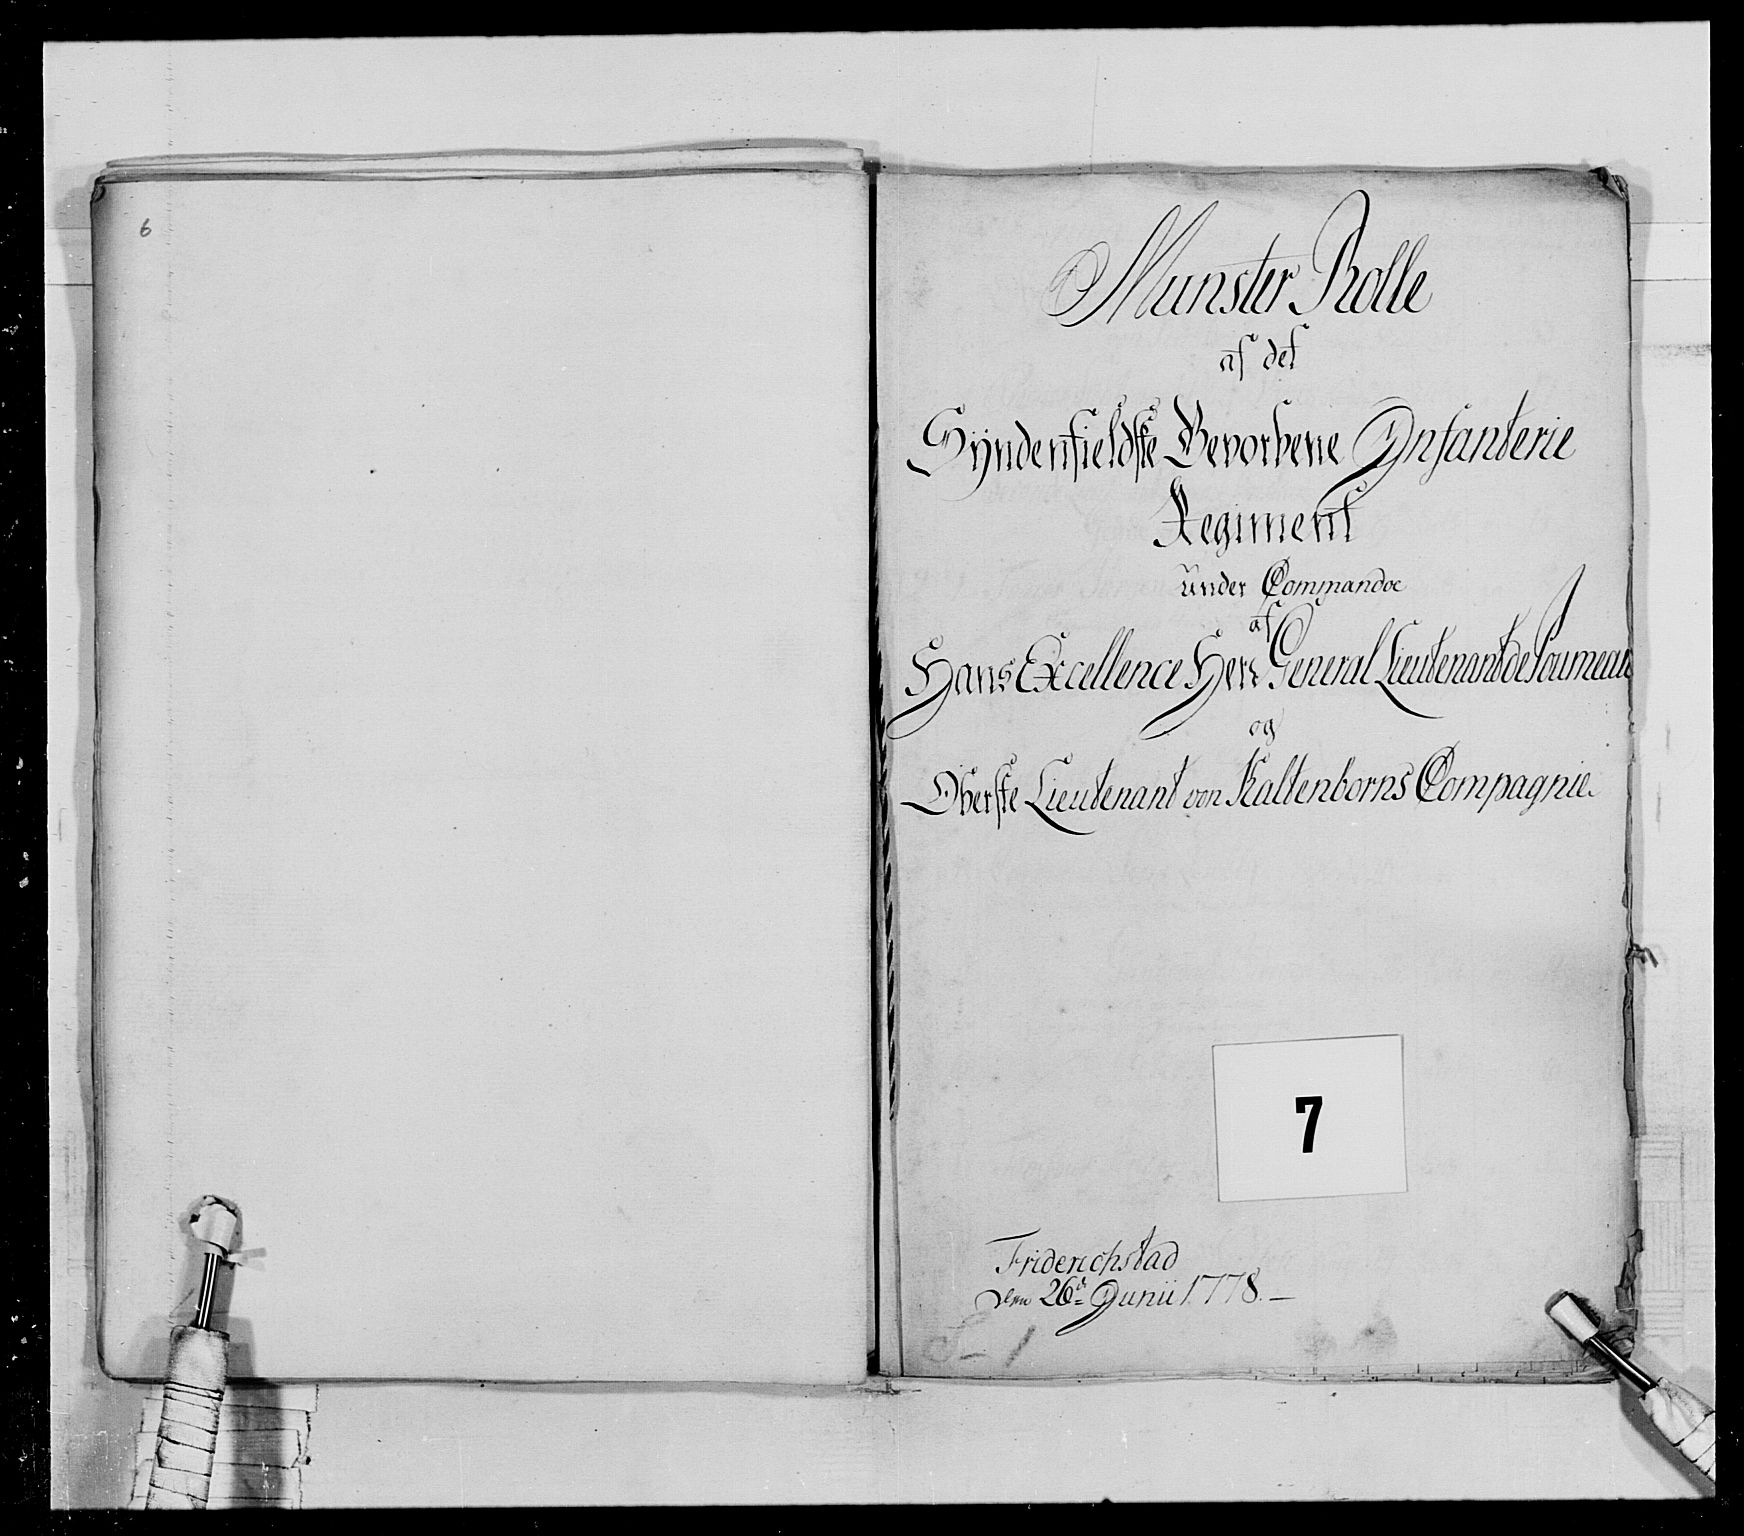 6
Munster Rolle
af det
Syndenfieldske Gevorbene Infanterie
Regiment
under Commandoe
af
Hans Excellence Herr General Lieutenant de Poumeau
og
Oberste Lieutenant von Kaltenborns Compagnie.
7
Friderichstad
den 26de Junii 1778. —